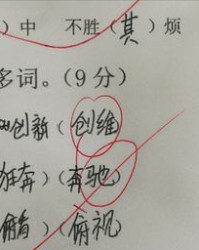 ）中 不胜（其）烦
多词。（9分）
创新（创维）
狂奔（奔驰）
）（俯视）